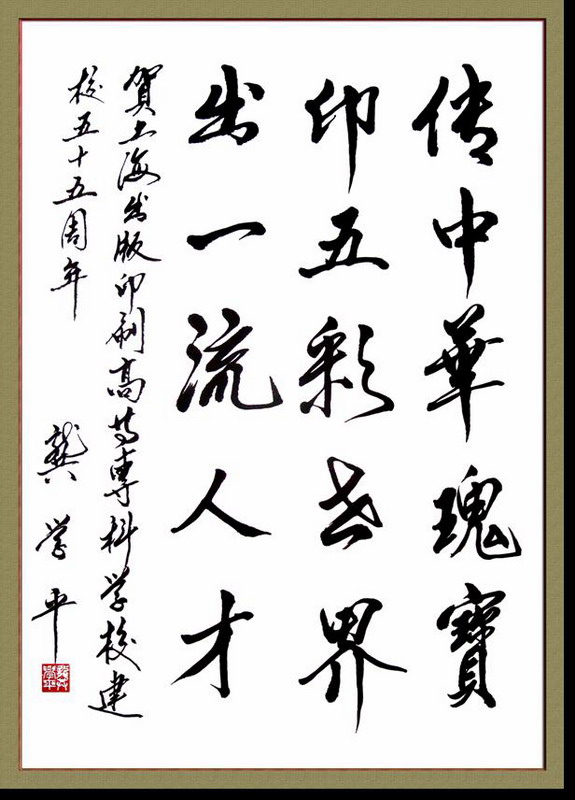 传中華瑰寶
印五彩世界
出一流人才
賀上海出版印刷高等專科学校建
校五十五周年
龔学平